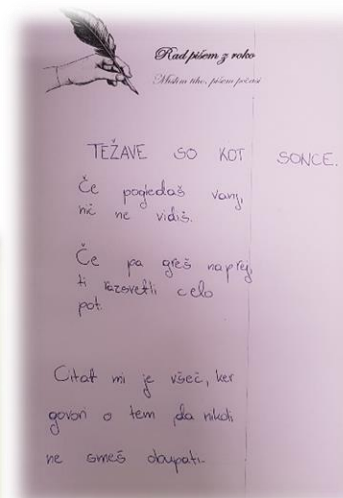 Rad pišem z roko
Mislim tiho, pišem počasi
TEŽAVE SO KOT SONCE.
Če pogledaš vanj,
nič ne vidiš.
Če pa greš naprej,
ti razsvetli celo
pot.
Citat mi je všeč, ker
govori o tem, da nikoli
ne smeš obupati.